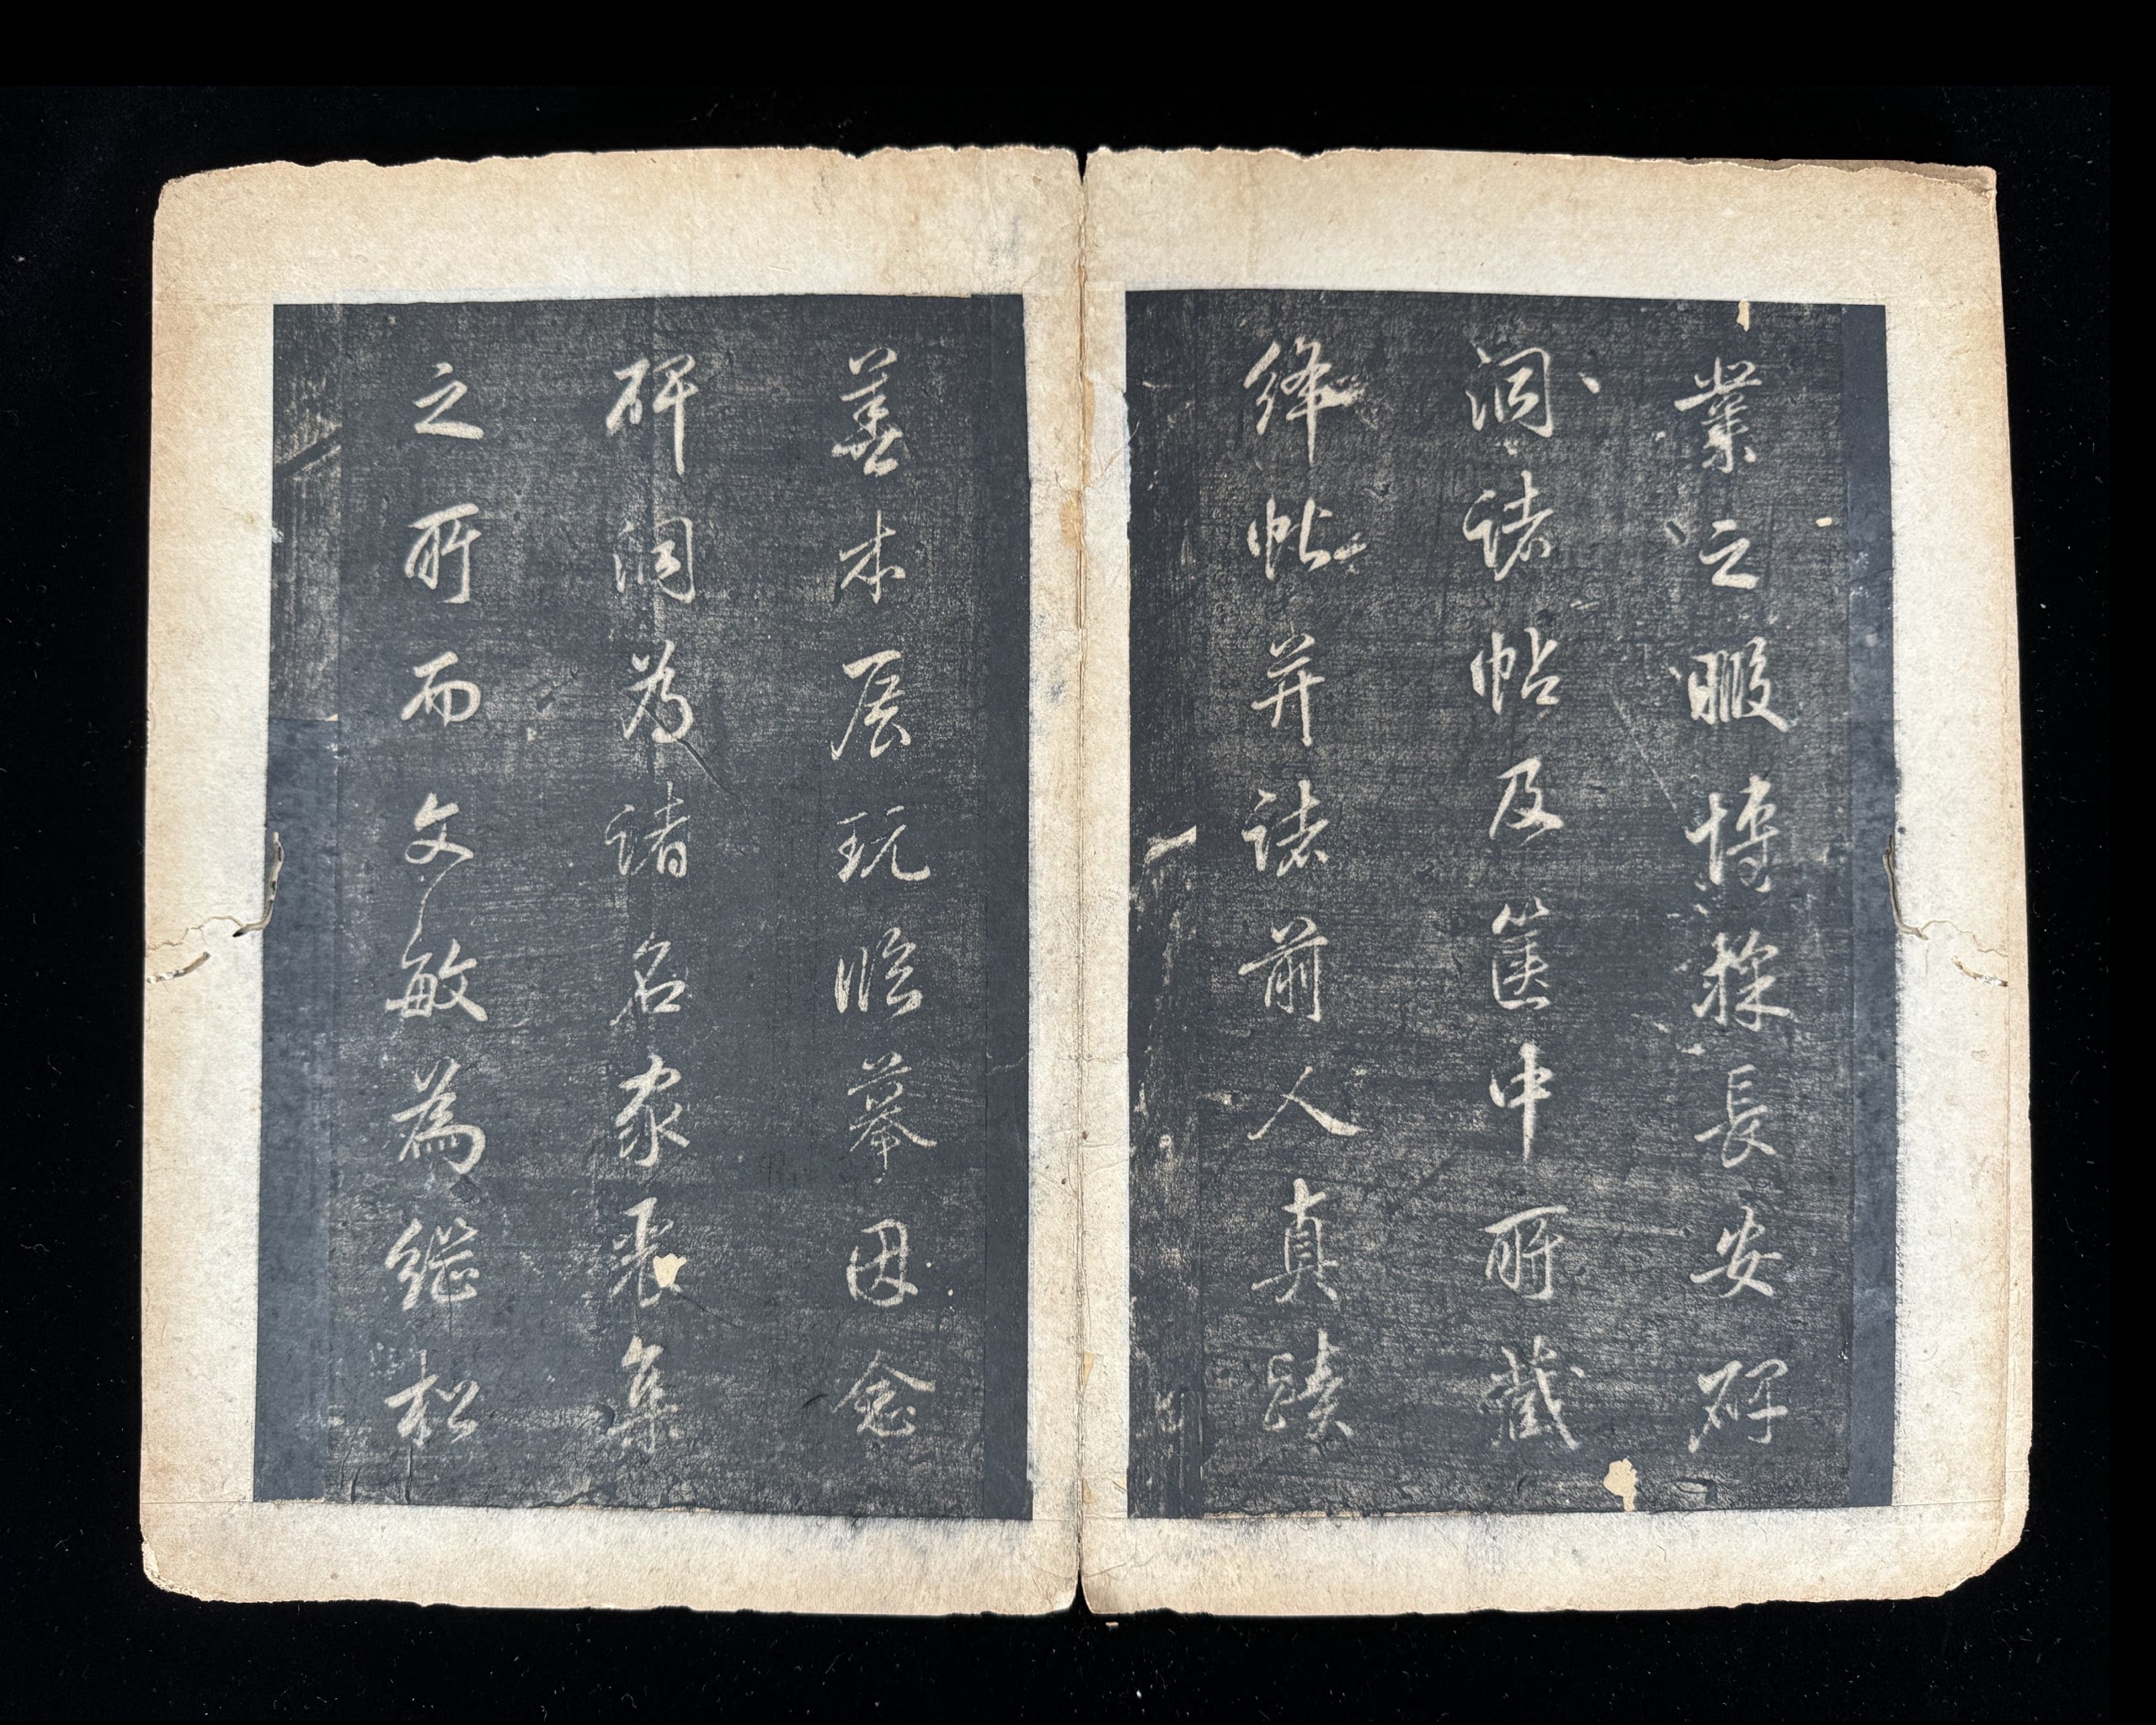 業之暇博探長安碑
洞諸帖及篋中所藏
絳帖并諸前人真蹟
善本展玩臨摹因念
碑洞為諸名家裒集
之所而文敏為繼松